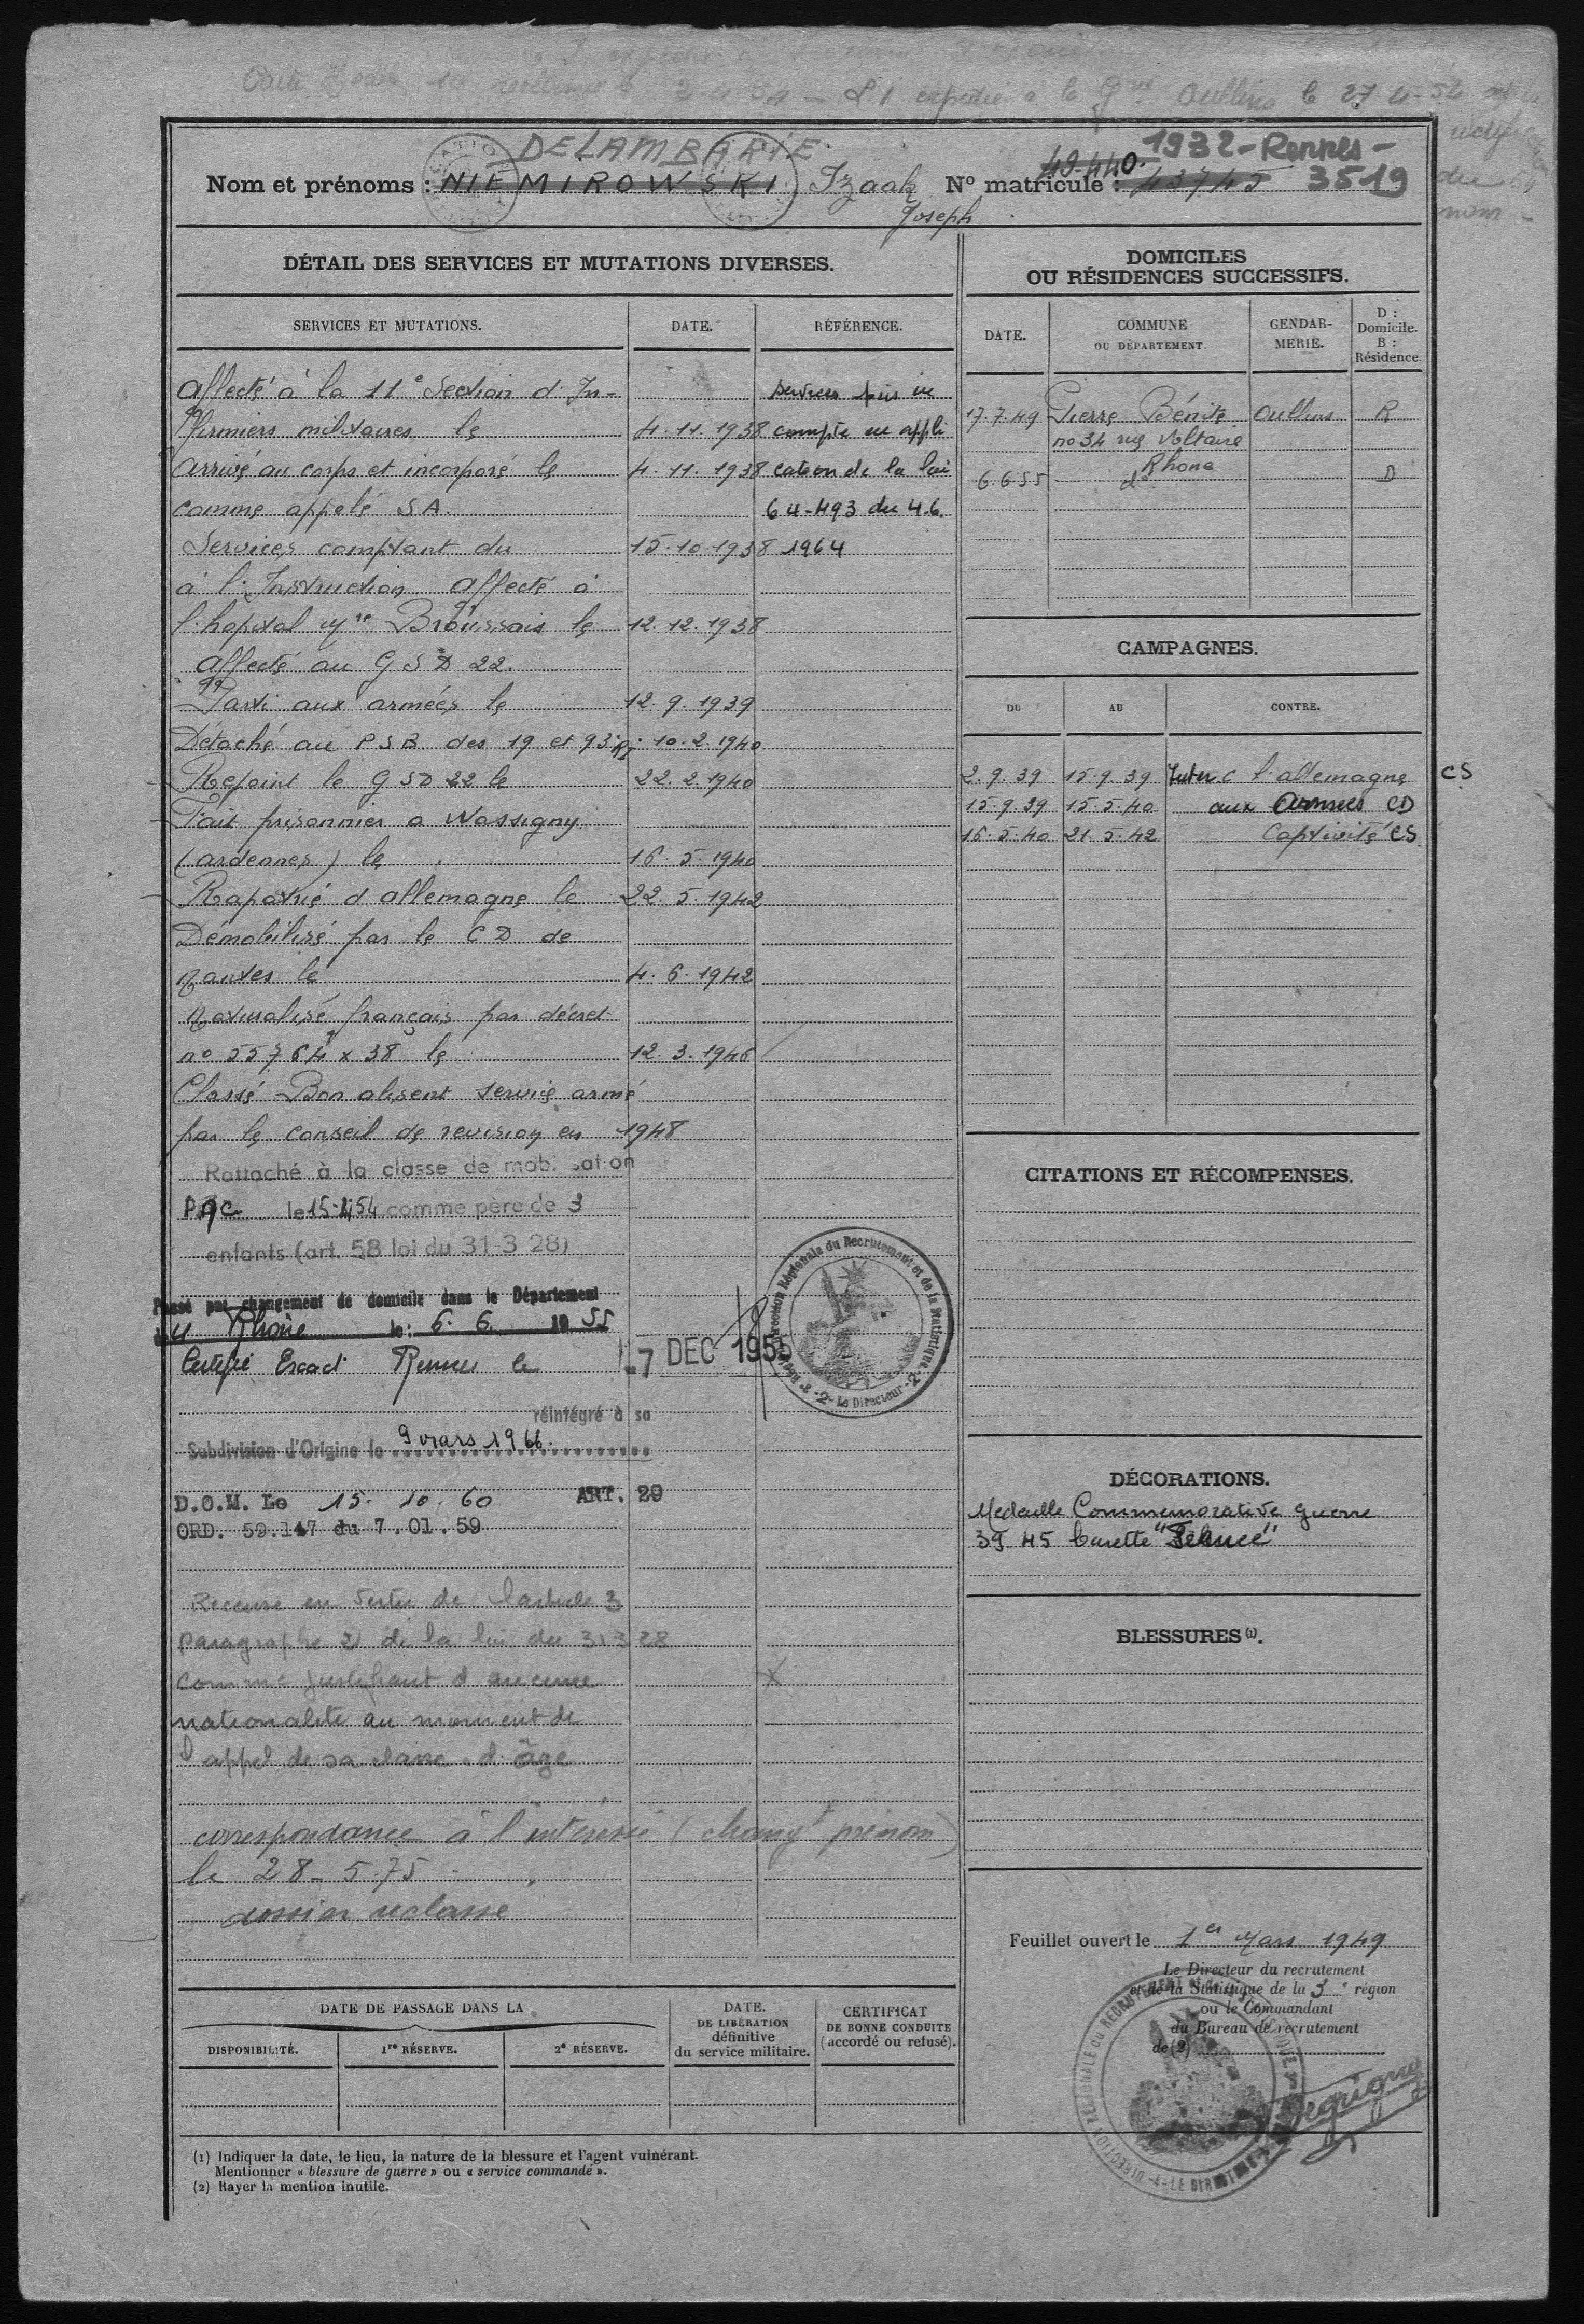 Carte
le 27-4-54
du
nom -
DELAMBARIE
Nom et prénoms : NIEMIROWSKI Izaak
Joseph
49-440. 1932 - Rennes -
N° matricule : 43745 3519
DÉTAIL DES SERVICES ET MUTATIONS DIVERSES.
SERVICES ET MUTATIONS. DATE. RÉFÉRENCE.
Affecté à la 11e Section d'In-
firmiers militaires le 4.11.1938
Arrivé au corps et incorporé le 4.11.1938
comme appelé S A.
Services comptant du 15.10.1938
à l'Instruction. Affecté à
l'hopital Mre Broussais le 12.12.1938
Affecté au G S D 22.
Parti aux armées le 12.9.1939
Détaché au P S B des 19 et 93 RI 10.2.1940
Rejoint le G S D 22 le 22.2.1940
Fait prisonnier a Wassigny
(ardennes) le 16.5.1940
Rapatrié d'allemagne le 22.5.1942
Démobilisé par le C D de
Nantes le 4.6.1942
Naturalisé français par décret
no 55764 x 38 le 12.3.1946
Classé Bon absent service armé
par le conseil de revision en 1948
services pris en
compte en appli
cation de la loi
64-493 du 4.6.
1964
Rattaché à la classe de mobilisation
le 15-4-54 comme père de 3
enfants (art. 58 loi du 31-3 28)
Passé par changement de domicile dans le Département
du Rhône le : 6. 6. 19 55
Certifié Exact Rennes le -7 DEC 1955
Direction Régionale du Recrutement et de la Statistique
-2- Le Directeur -2-
réintégré à sa
Subdivision d'Origine le 9 mars 1966.
D.O.M. Le 15. 10. 60 ART. 20
ORD. 59.147 du 7.01.59
Recensé en vertu de l'article 3
paragraphe 2 de la loi du 31 3 28
comme justifiant d'aucune
nationalité au moment de
l'appel de sa classe d'âge
correspondance à l'intéressé (changt prénom)
le 28-5-75
dossier reclassé
DOMICILES
OU RÉSIDENCES SUCCESSIFS.
DATE. COMMUNE OU DÉPARTEMENT. GENDARMERIE. D : Domicile. B : Résidence.
17.7.49 Pierre Bénite Oullins R
no 34 rue Voltaire
6.6.55 d° Rhone D
CAMPAGNES.
DU AU CONTRE.
2.9.39 15.9.39 Inter C l'allemagne CS
15.9.39 15.5.40 aux Armées CD
16.5.40 21.5.42 Captivité CS
CITATIONS ET RÉCOMPENSES.
DÉCORATIONS.
Medaille Commemorative guerre
39 45 barette
BLESSURES (1).
Feuillet ouvert le 1er Mars 1949
Le Directeur du recrutement
et de la Statistique de la 3e région
ou le Commandant
du Bureau de recrutement
de (2)
DATE DE PASSAGE DANS LA
DISPONIBILITÉ. 1re RÉSERVE. 2e RÉSERVE.
DATE. DE LIBÉRATION définitive du service militaire.
CERTIFICAT DE BONNE CONDUITE (accordé ou refusé).
(1) Indiquer la date, le lieu, la nature de la blessure et l'agent vulnérant.
Mentionner « blessure de guerre » ou « service commandé ».
(2) Rayer la mention inutile.